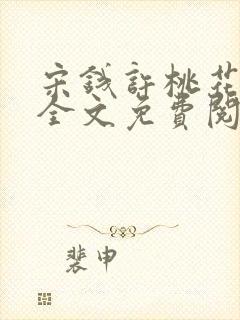 宋錢許桃花
全文免費閱
裴申